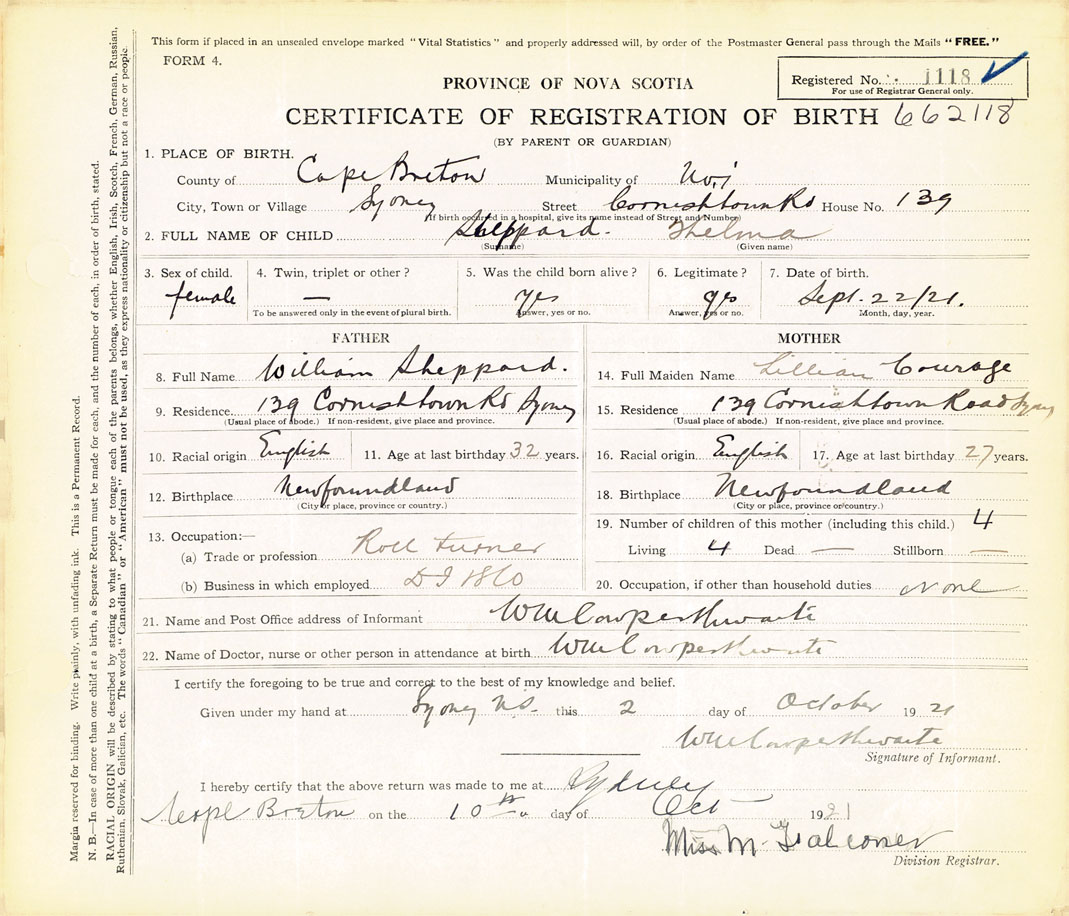 This form if placed in an unsealed envelope marked "Vital Statistics" and properly addressed will, by order of the Postmaster General pass through the Mails "FREE."
FORM 4.
Registered No. 1118
For use of Registrar General only.
PROVINCE OF NOVA SCOTIA
CERTIFICATE OF REGISTRATION OF BIRTH 662118
(BY PARENT OR GUARDIAN)
1. PLACE OF BIRTH.
County of Cape Breton Municipality of
City, Town or Village Sydney Street Cornishtown Rd House No. 139
If birth occurred in a hospital, give its name instead of Street and Number)
2. FULL NAME OF CHILD Sheppard. Thelma
(Surname) (Given name)
3. Sex of child. 4. Twin, triplet or other? 5. Was the child born alive? 6. Legitimate? 7. Date of birth.
female — yes yes Sept. 22/21.
To be answered only in the event of plural birth. Answer, yes or no. Answer, yes or no. Month, day, year.
FATHER
8. Full Name William Sheppard.
9. Residence 139 Cornishtown Rd Sydney
(Usual place of abode.) If non-resident, give place and province.
10. Racial origin English 11. Age at last birthday 32 years.
12. Birthplace Newfoundland
(City or place, province or country.)
13. Occupation:—
(a) Trade or profession Roll Turner
(b) Business in which employed
MOTHER
14. Full Maiden Name Lillian Courage
15. Residence 139 Cornishtown Road Sydney
(Usual place of abode.) If non-resident, give place and province.
16. Racial origin English 17. Age at last birthday 27 years.
18. Birthplace Newfoundland
(City or place, province or country.)
19. Number of children of this mother (including this child.) 4
Living 4 Dead — Stillborn —
20. Occupation, if other than household duties None
21. Name and Post Office address of Informant WM Cowperthwaite
22. Name of Doctor, nurse or other person in attendance at birth WM Cowperthwaite
I certify the foregoing to be true and correct to the best of my knowledge and belief.
Given under my hand at Sydney N.S. this 2 day of October 1921
WM Cowperthwaite
Signature of Informant.
I hereby certify that the above return was made to me at Sydney
Cape Breton on the 10th day of Oct 1921
Miss M. Falconer
Division Registrar.
Margin reserved for binding. Write plainly, with unfading ink. This is a Permanent Record.
N. B.—In case of more than one child at a birth, a Separate Return must be made for each, and the number of each, in order of birth, stated.
RACIAL ORIGIN will be described by stating to what people or tongue each of the parents belongs, whether English, Irish, Scotch, French, German, Russian,
Ruthenian, Slovak, Galician, etc. The words "Canadian" or "American" must not be used, as they express nationality or citizenship but not a race or people.